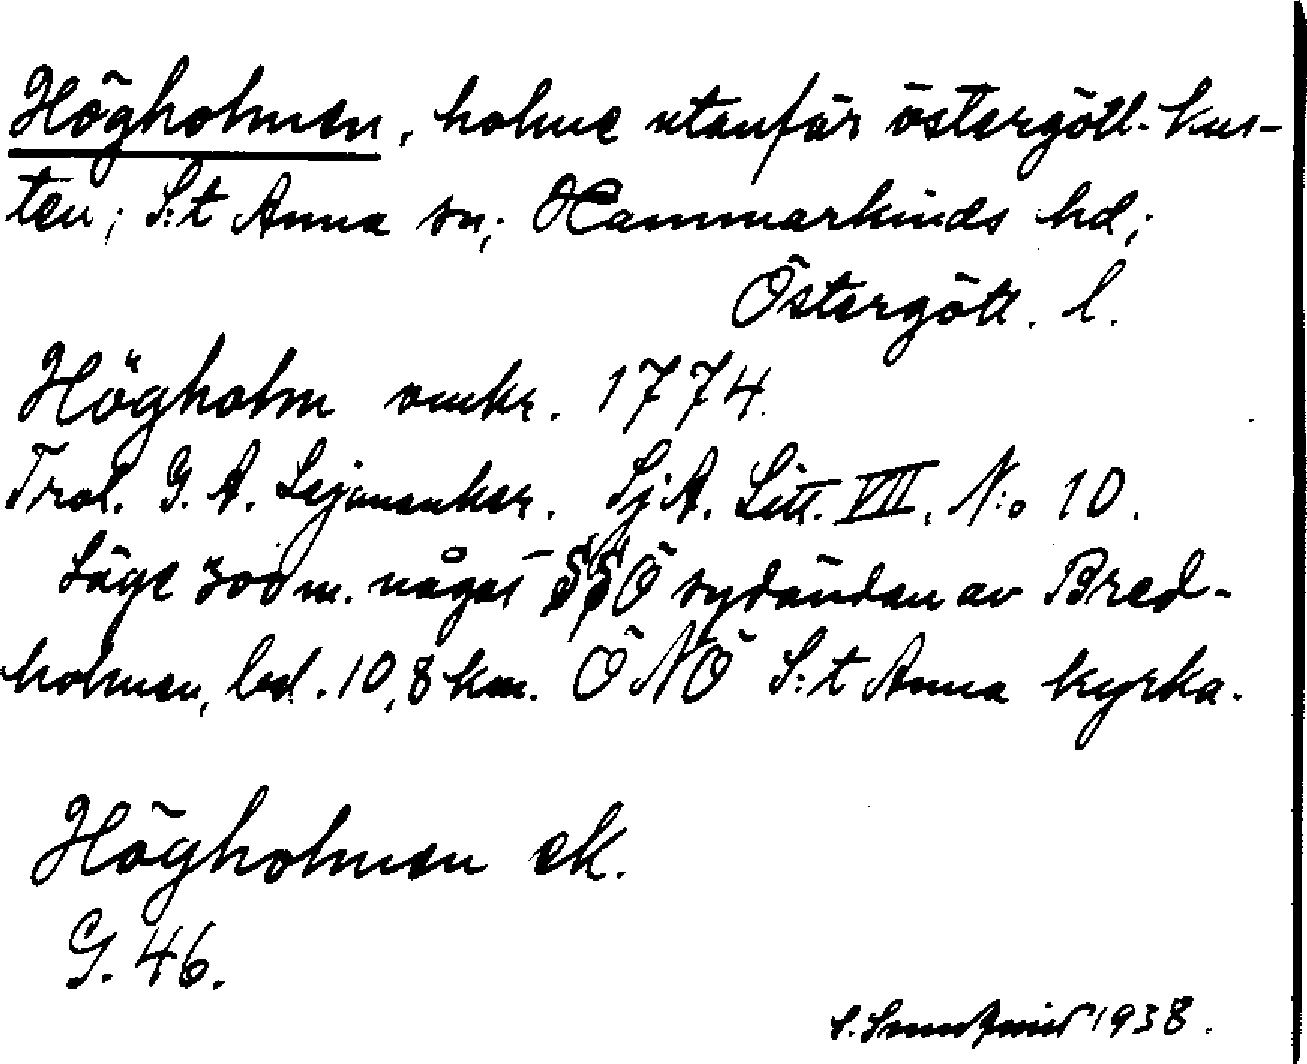 Högholmen, holme utanför östergötl. kus-
ten; S:t Anna sn; Hammarkinds hd;
Östergötl. l.
Högholm omkr. 1774.
Trol. G. A. Lejonanker. SjA. Litt. VII. N:o 10.
Läge 300 m. något SSÖ sydändan av Bred-
holmen, bel. 10,8 km. ÖNÖ S:t Anna kyrka.
Högholmen ek.
G. 46.
1938.